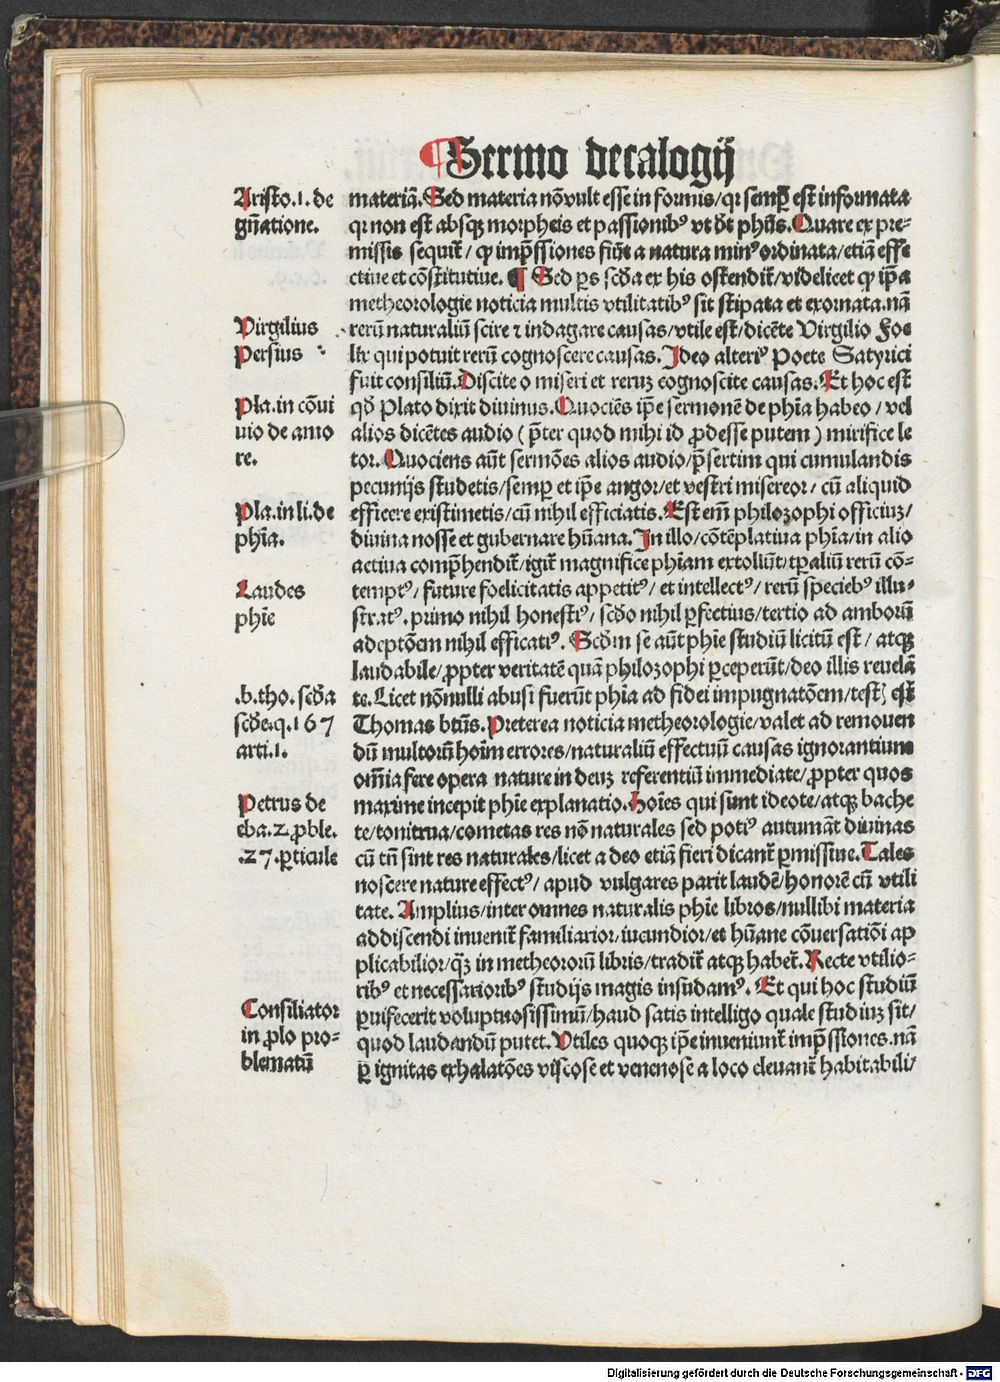 ¶ Sermo decalogij
Aristo.1. de
gn̄atione.
Virgilius
Persius
Pla. in cōui
uio de amo
re.
Pla. in li. de
phīa.
Laudes
phīe
.b. tho. scďa
scďe. q. 167
arti.1.
Petrus de
eba. 2. ꝓble.
.27. ꝑticule
Consiliator
in ꝓlo pro-
blematū
materiā. Sed materia nōvult esse in formis/qꝛ semꝑ est informata
qꝛ non est absqꝫ morpheis et passionibꝰ vt dt̄ phūs. Quare ex pre-
missis sequit̄/ ꝙ imp̄ssiones fiūt a natura minꝰ ordinata/etiā effe
ctiue et cōstitutiue. ¶ Sed ꝑs scďa ex his ostendit̄/videlicet ꝙ ip̄a
metheorologie noticia multis vtilitatibꝰ sit stipata et exornata. nā
rerū naturaliū scire ⁊ indagare causas/vtile est/dicēte Virgilio Foe
lix qui potuit rerū cognoscere causas. Ideo alteriꝰ Poete Satyrici
fuit consiliū. Discite o miseri et reruꝫ cognoscite causas. Et hoc est
qď Plato dixit diuinus. Quociēs ip̄e sermonē de phīa habeo/vel
alios dicētes audio (p̄ter quod mihi id ꝓdesse putem) mirifice le
tor. Quociens aūt sermōes alios audio/p̄sertim qui cumulandis
pecunijs studetis/semꝑ et ip̄e angor/et vestri misereor/ cū aliquid
efficere existimetis/cū nihil efficiatis. Est em̄ philozophi officiuꝫ/
diuina nosse et gubernare hūana. In illo/cōtēplatiua phīa/in alio
actiua comp̄hendit̄/igit̄ magnifice phīam extoliūt/tꝑaliū rerū cō-
temptꝰ/ future foelicitatis appetitꝰ/ et intellectꝰ/ rerū speciebꝰ illu-
stratꝰ. primo nihil honestiꝰ/ scďo nihil ꝑfectius/tertio ad amborū
adeptōem nihil efficatiꝰ. Scďm se aūt phīe studiū licitū est/ atqꝫ
laudabile/ꝓpter veritatē quā philozophi ꝑceperūt/deo illis reuelā
te. Licet nōnulli abusi fuerūt phīa ad fidei impugnatōem/testꝭ est
Thomas btūs. Preterea noticia metheorologie/valet ad remouen
dū multorū hoīm errores/naturaliū effectuū causas ignorantium
om̄ia fere opera nature in deuꝫ referentiū immediate/ꝓpter quos
maxime incepit phīe explanatio. hoīes qui sunt ideote/atqꝫ bache
te/tonitrua/cometas res nō naturales sed potiꝰ autumāt diuinas
cū tn̄ sint res naturales/licet a deo etiā fieri dicant̄ ꝑmissiue. Tales
noscere nature effectꝰ/ apud vulgares parit laudē/honorē cū vtili
tate. Amplius/inter omnes naturalis phīe libros/nullibi materia
addiscendi inuenit̄ familiarior/iucundior/et hūane cōuersatiōi ap
plicabilior/qꝫ̄ in metheororū libris/tradit̄ atqꝫ habet̄. Recte vtilio-
ribꝰ et necessarioribꝰ studijs magis insudamꝰ. Et qui hoc studiū
ꝑuifecerit voluptuosissimū/haud satis intelligo quale studiuꝫ sit/
quod laudandū putet. Vtiles quoqꝫ ip̄e inueniunt̄ imp̄ssiones. nā
ꝑ ignitas exhalatōes viscose et venenose a loco eleuant̄ habitabili/
Digitalisierung gefördert durch die Deutsche Forschungsgemeinschaft - DFG